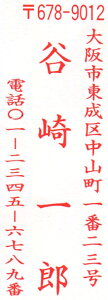 〒678-9012
大阪市東成区中山町一番二三号
谷崎一郎
電話〇一一二三四五一六七八九番